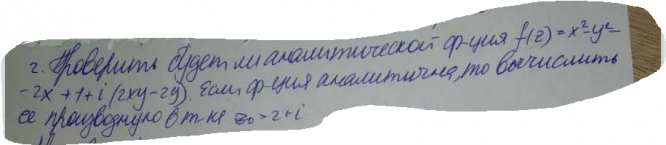 2. Проверить будет ли аналитической ф-ция f(z) = x²-y²-
-2x+1+i(2xy-2y). Если ф-ция аналитична, то вычислить
ее производную в т-ке z₀ = 2+i